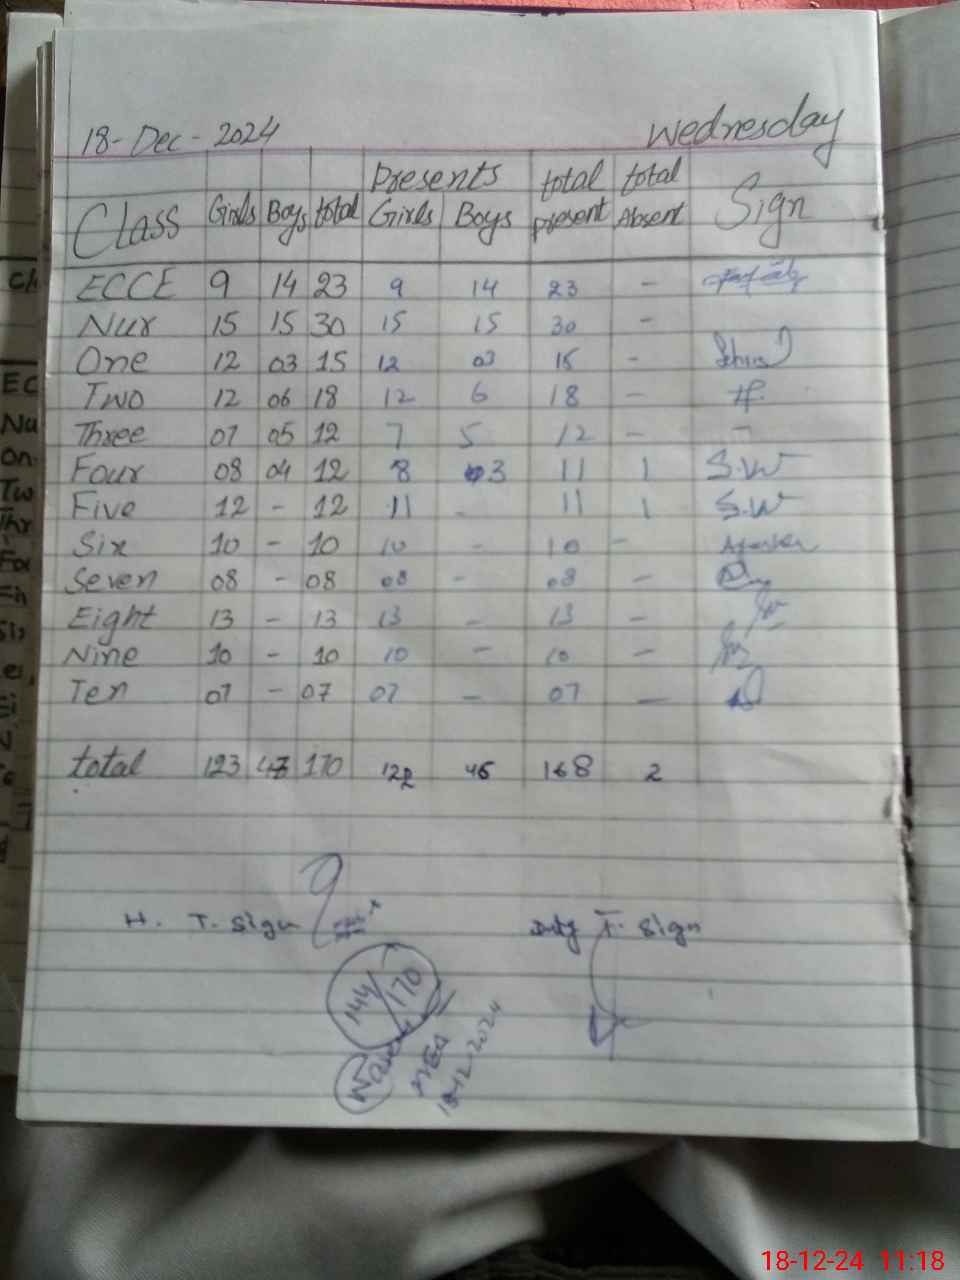 18-Dec-2024 Wednesday
Presents total total
Class Girls Boys total Girls Boys present Absent Sign
ECCE 9 14 23 9 14 23 -
Nur 15 15 30 15 15 30 -
One 12 03 15 12 03 15 -
Two 12 06 18 12 6 18 -
Three 07 05 12 7 5 12 - -
Four 08 04 12 8 3 11 1 S.W
Five 12 - 12 11 - 11 1 S.W
Six 10 - 10 10 - 10 -
Seven 08 - 08 08 - 08 -
Eight 13 - 13 13 - 13 -
Nine 10 - 10 10 - 10 -
Ten 07 - 07 07 - 07 -
total 123 47 170 122 46 168 2
H. T. Sign Duty T. Sign
144/170
MEA
18-12-2024
18-12-24 11:18